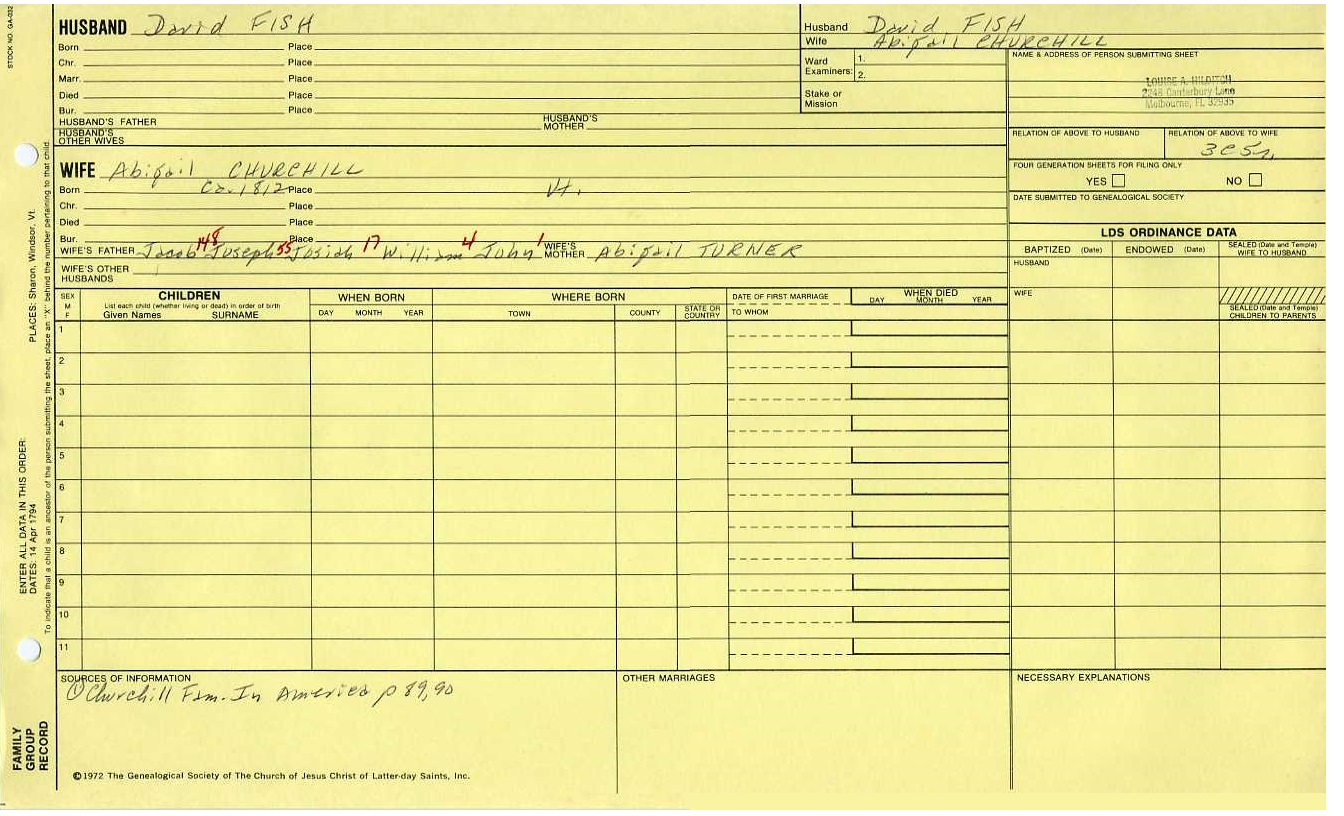 STOCK NO. GA-032
HUSBAND David FISH
Born Place
Chr. Place
Marr. Place
Died Place
Bur. Place
HUSBAND'S FATHER HUSBAND'S MOTHER
HUSBAND'S OTHER WIVES
WIFE Abigail CHURCHILL
Born Ca. 1812 Place Vt.
Chr. Place
Died Place
Bur. Place
WIFE'S FATHER Jacob 148 Joseph 55 Josiah 17 William 4 John 1 WIFE'S MOTHER Abigail TURNER
WIFE'S OTHER HUSBANDS
Husband David FISH
Wife Abigail CHURCHILL
Ward Examiners: 1.
2.
Stake or Mission
NAME & ADDRESS OF PERSON SUBMITTING SHEET
LOUISE A. HILDITCH
2248 Canterbury Lane
Melbourne, FL 32935
RELATION OF ABOVE TO HUSBAND RELATION OF ABOVE TO WIFE
3c5r,
FOUR GENERATION SHEETS FOR FILING ONLY
YES NO
DATE SUBMITTED TO GENEALOGICAL SOCIETY
LDS ORDINANCE DATA
BAPTIZED (Date) ENDOWED (Date) SEALED (Date and Temple) WIFE TO HUSBAND
HUSBAND
WIFE
SEALED (Date and Temple) CHILDREN TO PARENTS
SEX M F
CHILDREN
List each child (whether living or dead) in order of birth
Given Names SURNAME
WHEN BORN
DAY MONTH YEAR
WHERE BORN
TOWN COUNTY STATE OR COUNTRY
DATE OF FIRST MARRIAGE
TO WHOM
WHEN DIED
DAY MONTH YEAR
1
2
3
4
5
6
7
8
9
10
11
SOURCES OF INFORMATION
① Churchill Fam. In America p 89,90
OTHER MARRIAGES
NECESSARY EXPLANATIONS
©1972 The Genealogical Society of The Church of Jesus Christ of Latter-day Saints, Inc.
FAMILY GROUP RECORD
ENTER ALL DATA IN THIS ORDER:
DATES: 14 Apr 1794
PLACES: Sharon, Windsor, Vt.
To indicate that a child is an ancestor of the person submitting the sheet, place an "X" behind the number pertaining to that child.